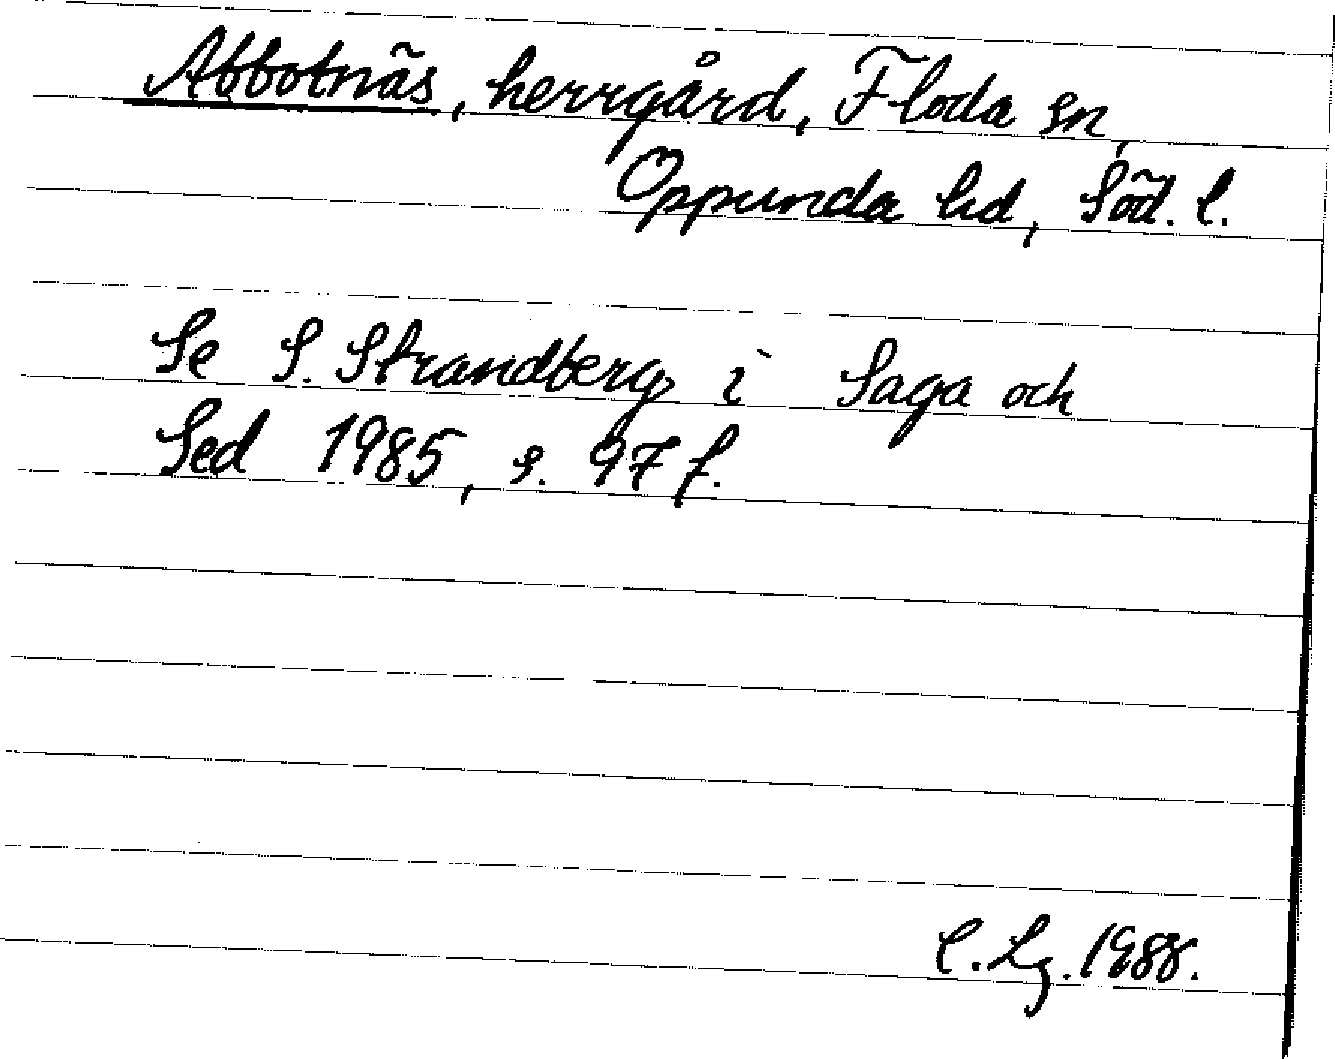 Abbotnäs, herrgård, Floda sn,
Oppunda hd, Söd. l.
Se S. Strandberg i Saga och
Sed 1985, s. 97 f.
C. Lg. 1988.